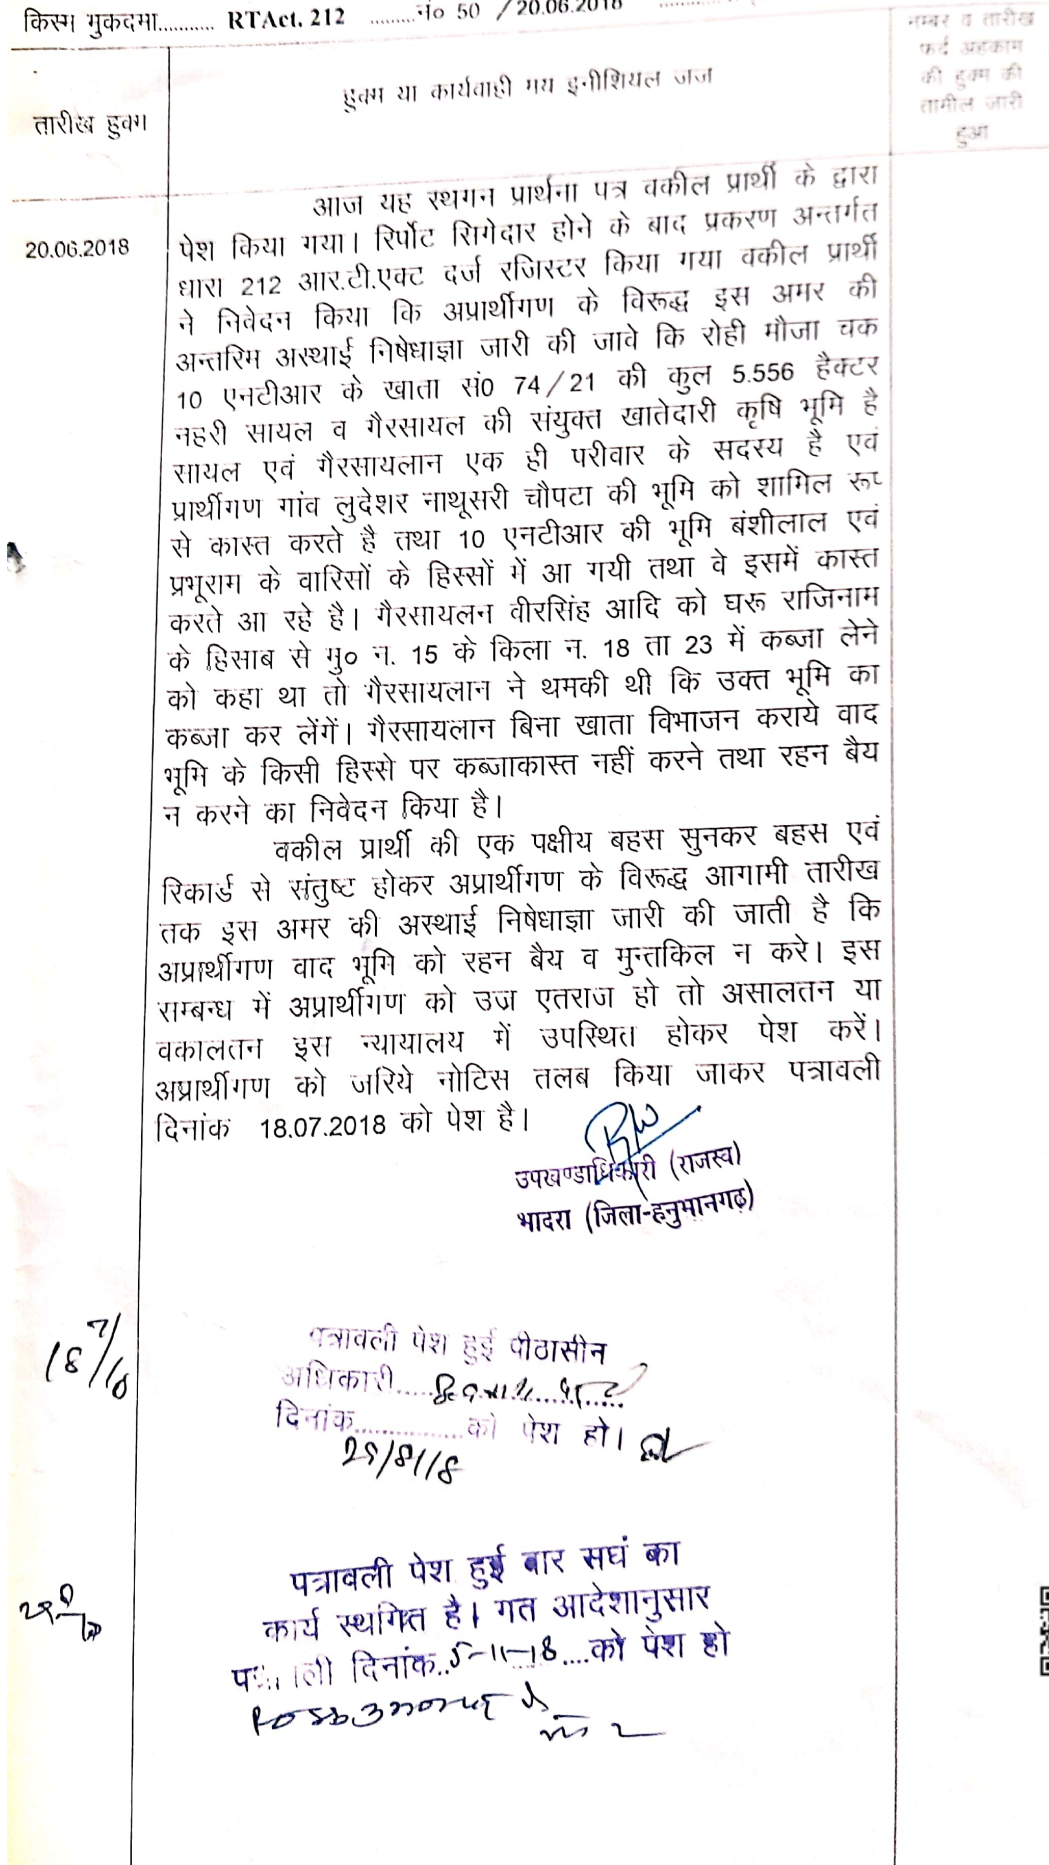 किस्म मुकदमा........... RTAct. 212 .........नं० 50 / 20.06.2018
नम्बर व तारीख
फर्द अहकाम
की हुक्म की
तामील जारी
हुआ
तारीख हुक्म
हुक्म या कार्यवाही मय इनीशियल जज
20.06.2018
आज यह स्थगन प्रार्थना पत्र वकील प्रार्थी के द्वारा
पेश किया गया। रिर्पोट सिगेदार होने के बाद प्रकरण अन्तर्गत
धारा 212 आर.टी.एक्ट दर्ज रजिस्टर किया गया वकील प्रार्थी
ने निवेदन किया कि अप्रार्थीगण के विरूद्ध इस अमर की
अन्तरिम अस्थाई निषेधाज्ञा जारी की जावे कि रोही मौजा चक
10 एनटीआर के खाता सं0 74/21 की कुल 5.556 हैक्टर
नहरी सायल व गैरसायल की संयुक्त खातेदारी कृषि भूमि है
सायल एवं गैरसायलान एक ही परीवार के सदस्य है एवं
प्रार्थीगण गांव लुदेशर नाथूसरी चौपटा की भूमि को शामिल रूप
से कास्त करते है तथा 10 एनटीआर की भूमि बंशीलाल एवं
प्रभूराम के वारिसों के हिस्सों में आ गयी तथा वे इसमें कास्त
करते आ रहे है। गैरसायलन वीरसिंह आदि को घरू राजिनाम
के हिसाब से मु० न. 15 के किला न. 18 ता 23 में कब्जा लेने
को कहा था तो गैरसायलान ने थमकी थी कि उक्त भूमि का
कब्जा कर लेंगें। गैरसायलान बिना खाता विभाजन कराये वाद
भूमि के किसी हिस्से पर कब्जाकास्त नहीं करने तथा रहन बैय
न करने का निवेदन किया है।
वकील प्रार्थी की एक पक्षीय बहस सुनकर बहस एवं
रिकार्ड से संतुष्ट होकर अप्रार्थीगण के विरूद्ध आगामी तारीख
तक इस अमर की अस्थाई निषेधाज्ञा जारी की जाती है कि
अप्रार्थीगण वाद भूमि को रहन बैय व मुन्तकिल न करे। इस
सम्बन्ध में अप्रार्थीगण को उज्र एतराज हो तो असालतन या
वकालतन इस न्यायालय में उपस्थित होकर पेश करें।
अप्रार्थीगण को जरिये नोटिस तलब किया जाकर पत्रावली
दिनांक 18.07.2018 को पेश है।
उपखण्डाधिकारी (राजस्व)
भादरा (जिला-हनुमानगढ़)
18/7/18
पत्रावली पेश हुई पीठासीन
अधिकारी
दिनांक................को पेश हो।
29/8/18
पत्रावली पेश हुई बार सघं का
कार्य स्थगित है। गत आदेशानुसार
दिनांक..5-11-18....को पेश हो